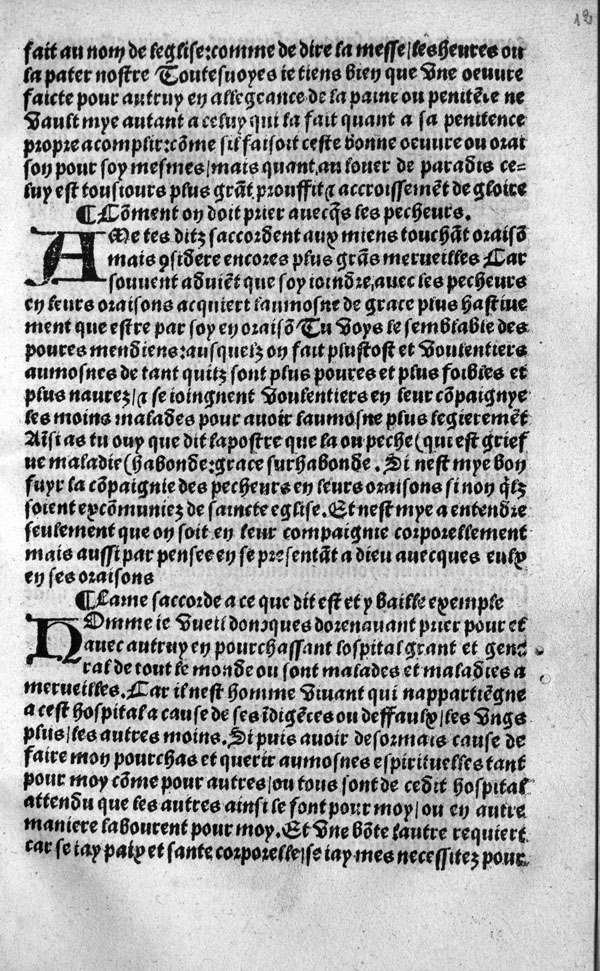 12
fait au nom de leglise:comme de dire la messe/les heures ou
la pater nostre Toutesuoyes ie tiens bien que vne oeuure
faicte pour autruy en allegeance de la paine ou penitẽce ne
vault mye autant a celuy qui la fait quant a sa penitence
propre acomplir:cõme sil faisoit ceste bonne oeuure ou orai
son pour soy mesmes/mais quant,au louer de paradis ce-
luy est tousiours plus grãt,prouffit⁊ accroissemẽt de gloire
¶Cõment on doit prier auecq̃s les pecheurs.
AMe tes ditz saccordent aux miens touchãt oraisõ
mais ꝯsidere encores plus grãs merueilles Car
souuent aduiẽt que soy ioindre,auec les pecheurs
en leurs oraisons acquiert laumosne de grace plus hastiue
ment que estre par soy en oraisõ Tu voys le semblable des
poures mendiens:ausquelz on fait plustost et voulentiers
aumosnes de tant quilz sont plus poures et plus foibles et
plus naurez/⁊ se ioingnent voulentiers en leur cõpaignye
les moins malades pour auoir laumosne plus legieremẽt
Aĩsi as tu ouy que dit lapostre que la ou peche(qui est grief
ue maladie(habonde:grace surhabonde.Si nest mye bon
fuyr la cõpaignie des pecheurs en leurs oraisons si non q̃lz
soient excõmuniez de saincte eglise.Et nest mye a entendre
seulement que on soit en leur compaignie corporellement
mais aussi par pensee en se presentãt a dieu auecques eulx
en ses oraisons
¶Lame saccorde a ce que dit est et y baille exemple
HOmme ie vueil doncques dorenauant prier pour et
auec autruy en pourchassant lospital grant et gene
ral de tout le monde ou sont malades et maladies a
merueilles.Car il nest homme viuant qui nappartiẽgne
a cest hospital a cause de ses ĩdigẽces ou deffaulx/les vngs
plus/les autres moins.Si puis auoir desormais cause de
faire mon pourchas et querir aumosnes espirituelles tant
pour moy cõme pour autres/ou tous sont de cedit hospital
attendu que les autres ainsi le font pour moy/ou en autre
maniere labourent pour moy.Et vne bõte lautre requiert
car se iay paix et sante corporelle/se iay mes necessitez pour